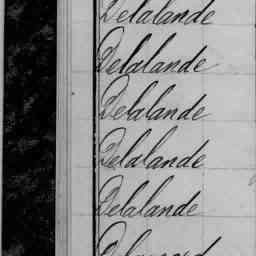 Delalande
Delalande
Delalande
Delalande
Delalande